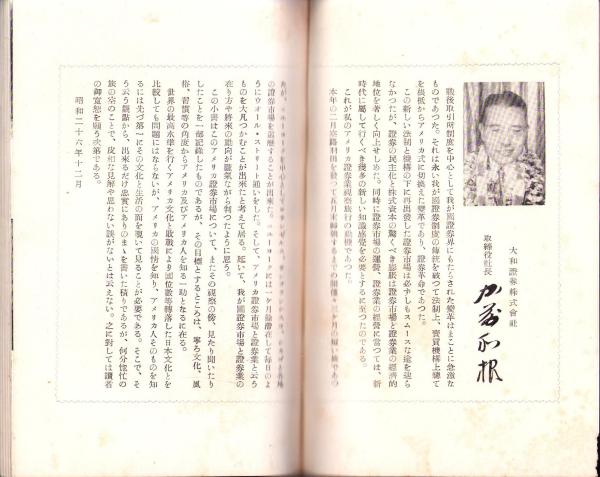 大和證券株式會社
取締役社長
戰後取引所制度を中心として我が國證券界にもたらされた變革はまことに急激な
ものであつた。それは永い我が國證券制度の傳統を破つて法制上、賣買機構上總て
を根底からアメリカ式に切換えた變革であり、證券革命であつた。
この新しい法制と機構の下に再出發した證券市場は必ずしもスムースな途を辿ら
なかつたが、證券の民主化と株式資本の驚くべき膨脹は證券市場と證券業の經濟的
地位を著しく向上せしめた。同時に證券市場の運營、證券業の經營に當つては、新
時代に屬して行くべき幾多の新しい知識感覺を必要とするに至つたのである。
これが私のアメリカ證券業視察旅行の動機であつた。
本年の二月
の證券市場を巡歷することが出來た。ニューヨークには一ケ月餘滯在して每日のよ
うにウオール・ストリート通いをした。そして、アメリカ證券市場と證券業と云う
ものを大凡つかむことが出來たと考えて居る。延いて、我が國證券市場と證券業の
在り方や將來の動向が朧氣ながら判つたように思う。
この小書はこのアメリカ證券市場について、またその視察の傍、見たり聞いたり
したことを一部記錄したものであるが、その目標とするところは、寧ろ文化、風
俗、習慣等の角度からアメリカ及びアメリカ人を知る一助となるに在る。
世界の最高水準を行くアメリカ文化と敗戰により國位數等轉落した日本文化とを
比較しても問題にはならないが、アメリカの國情を知り、アメリカ人そのものを知
るには先づ第一にその文化と生活の面を覗いて見ることが必要である。そこで、そ
う云う觀點から、出來るだけ忠實にありのまゝを書いた積りであるが、何分匆忙の
旅の空のことで、皮相な見解や思わない誤がないとは云えない。之に對しては讀者
の御寬恕を願う次第である。
昭和二十六年十二月